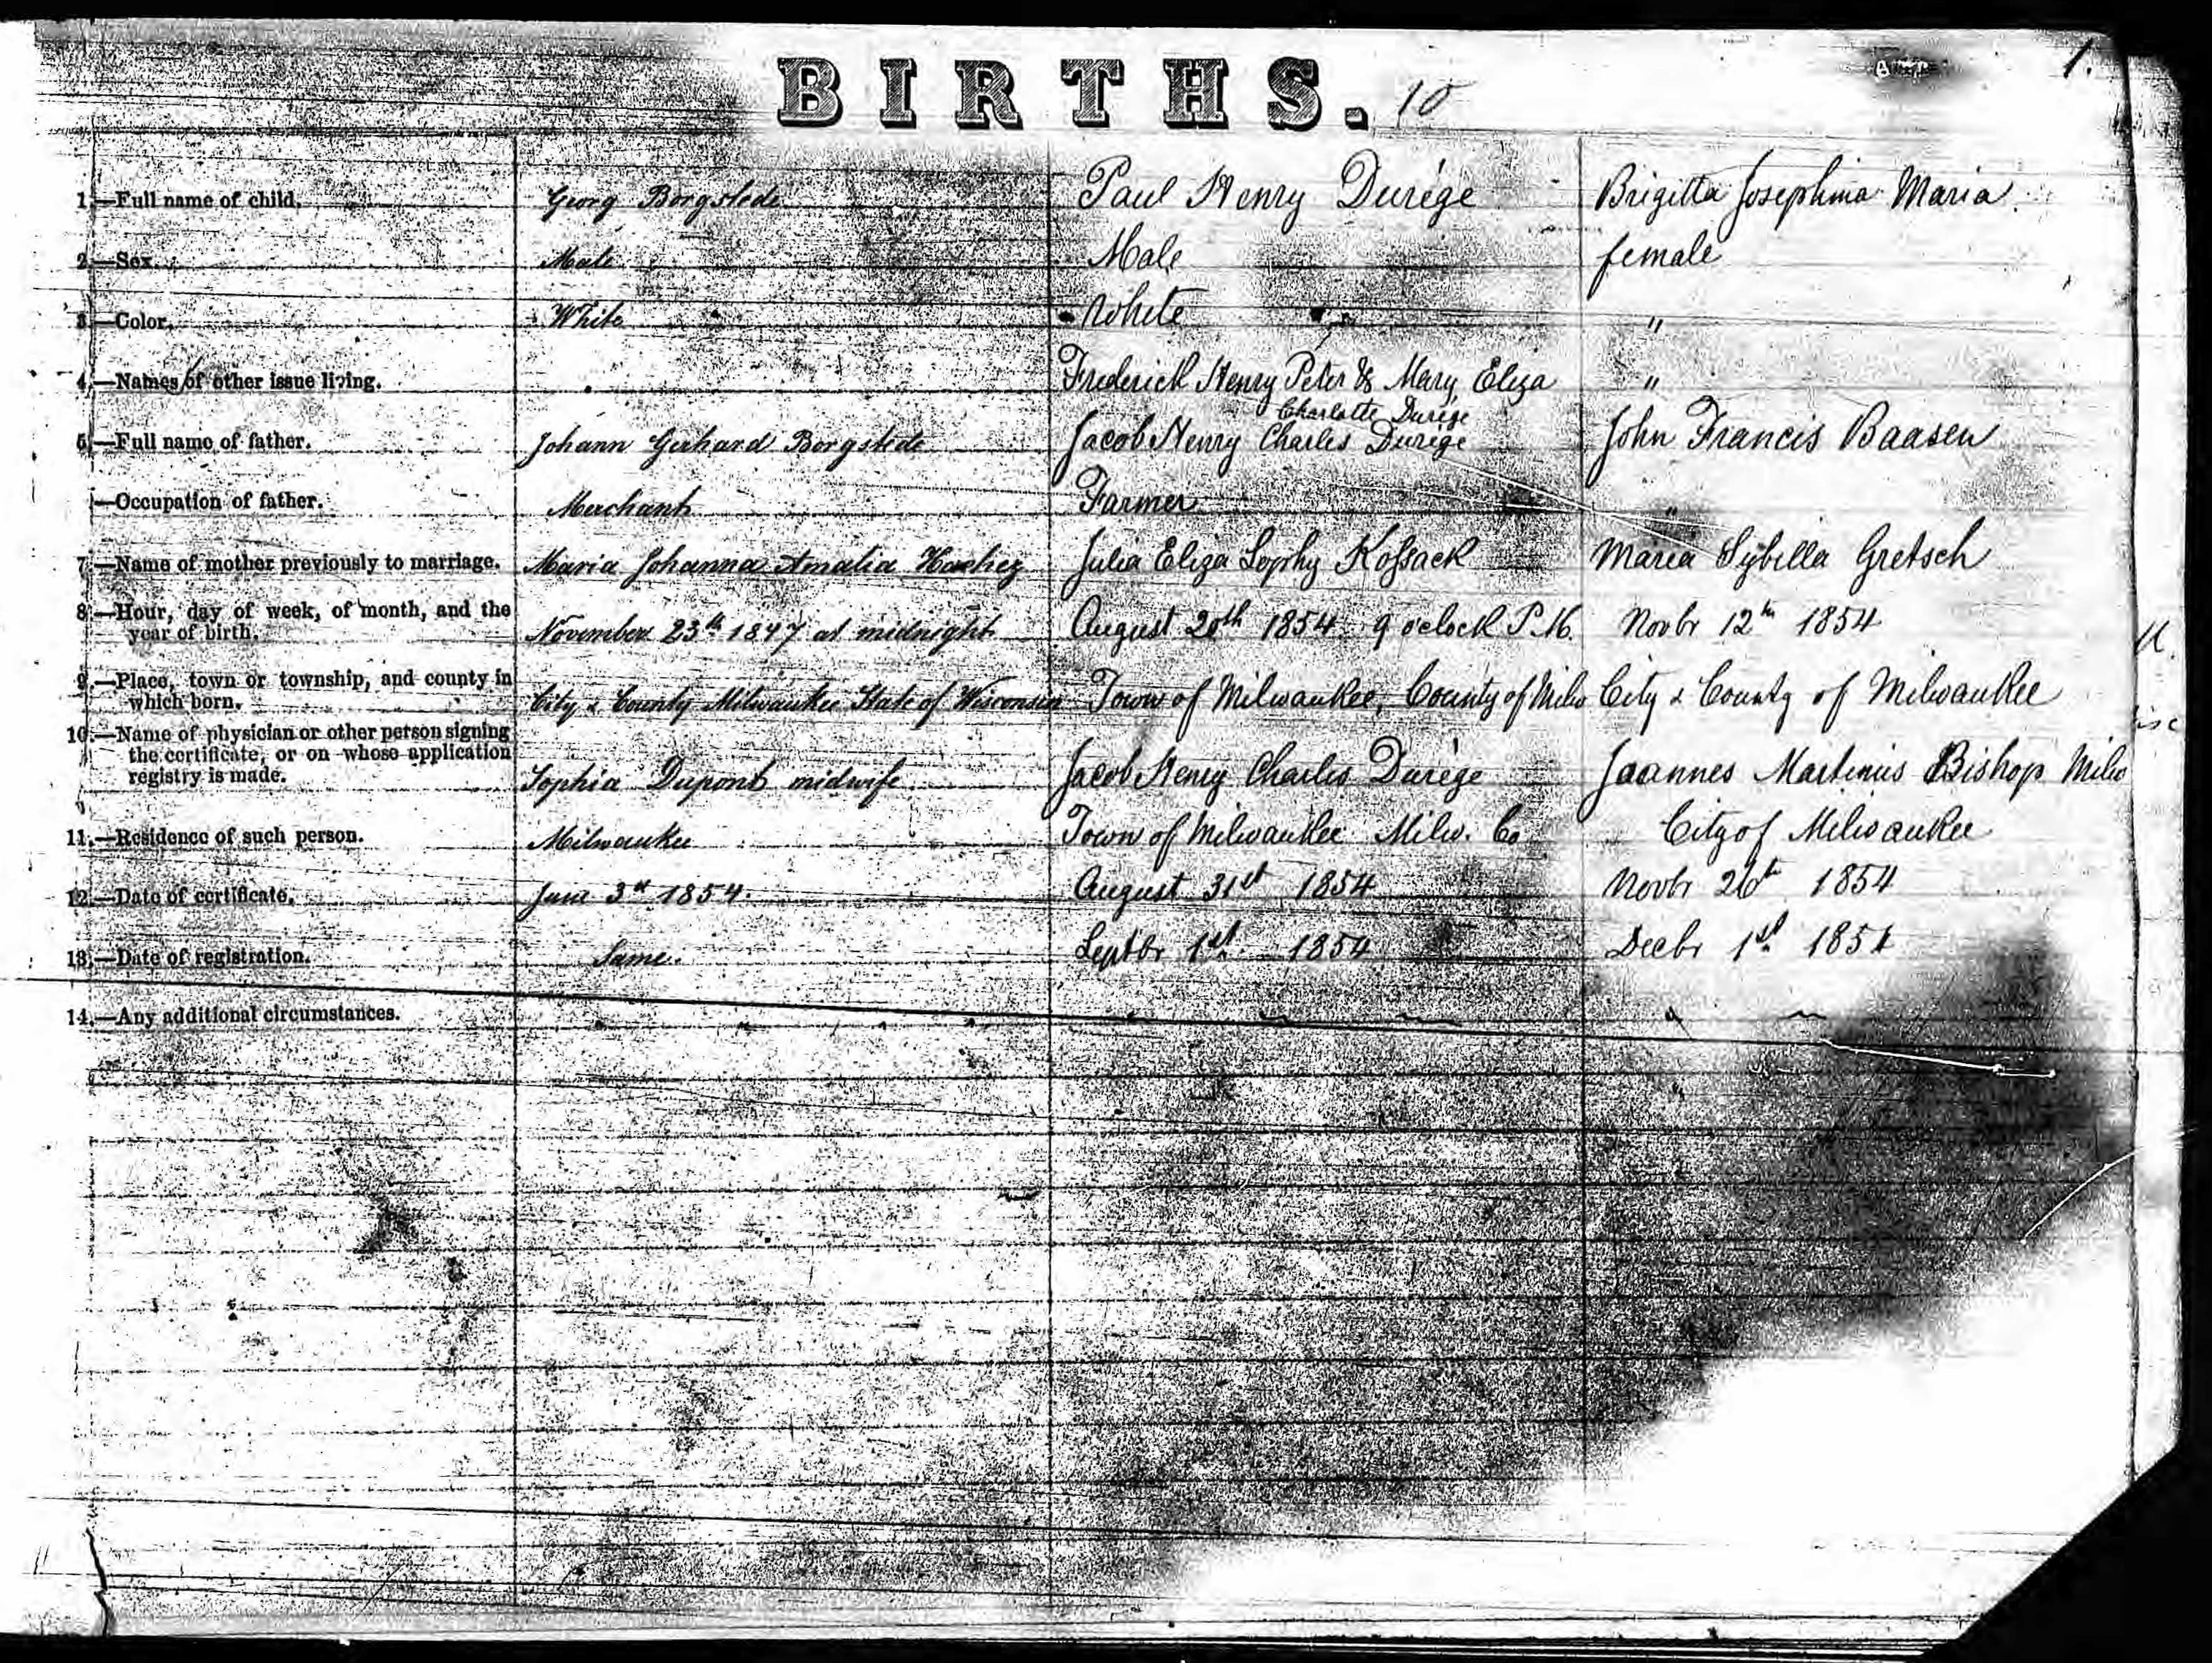 BIRTHS. 10
1.
1.—Full name of child. Georg Borgstede Paul Henry Durége Brigitta Josephina Maria.
2.—Sex. Male Male female
3.—Color. White White "
4.—Names of other issue living. Frederick Henry Peter & Mary Eliza "
Charlotte Durége
5.—Full name of father. Johann Gerhard Borgstede Jacob Henry Charles Durége John Francis Baasen
—Occupation of father. Merchant Farmer "
7.—Name of mother previously to marriage. Maria Johanna Amalia Hachez Julia Eliza Sophy Kossack Maria Sybilla Gretsch
8.—Hour, day of week, of month, and the
year of birth. November 23th 1847 at midnight August 20th 1854 9 o'clock P.M. Novbr 12th 1854
9.—Place, town or township, and county in
which born. City & County Milwaukee State of Wisconsin Town of Milwaukee, County of Milw City & County of Milwaukee
10.—Name of physician or other person signing
the certificate, or on whose application
registry is made. Sophia Dupont midwife Jacob Henry Charles Durége Joannes Martinus Bishop Milw
11.—Residence of such person. Milwaukee Town of Milwaukee Milw. Co City of Milwaukee
12.—Date of certificate. June 3d 1854. August 31st 1854 Novbr 26t 1854
13.—Date of registration. Same. Septbr 1st 1854 Decbr 1st 1854
14.—Any additional circumstances. " "